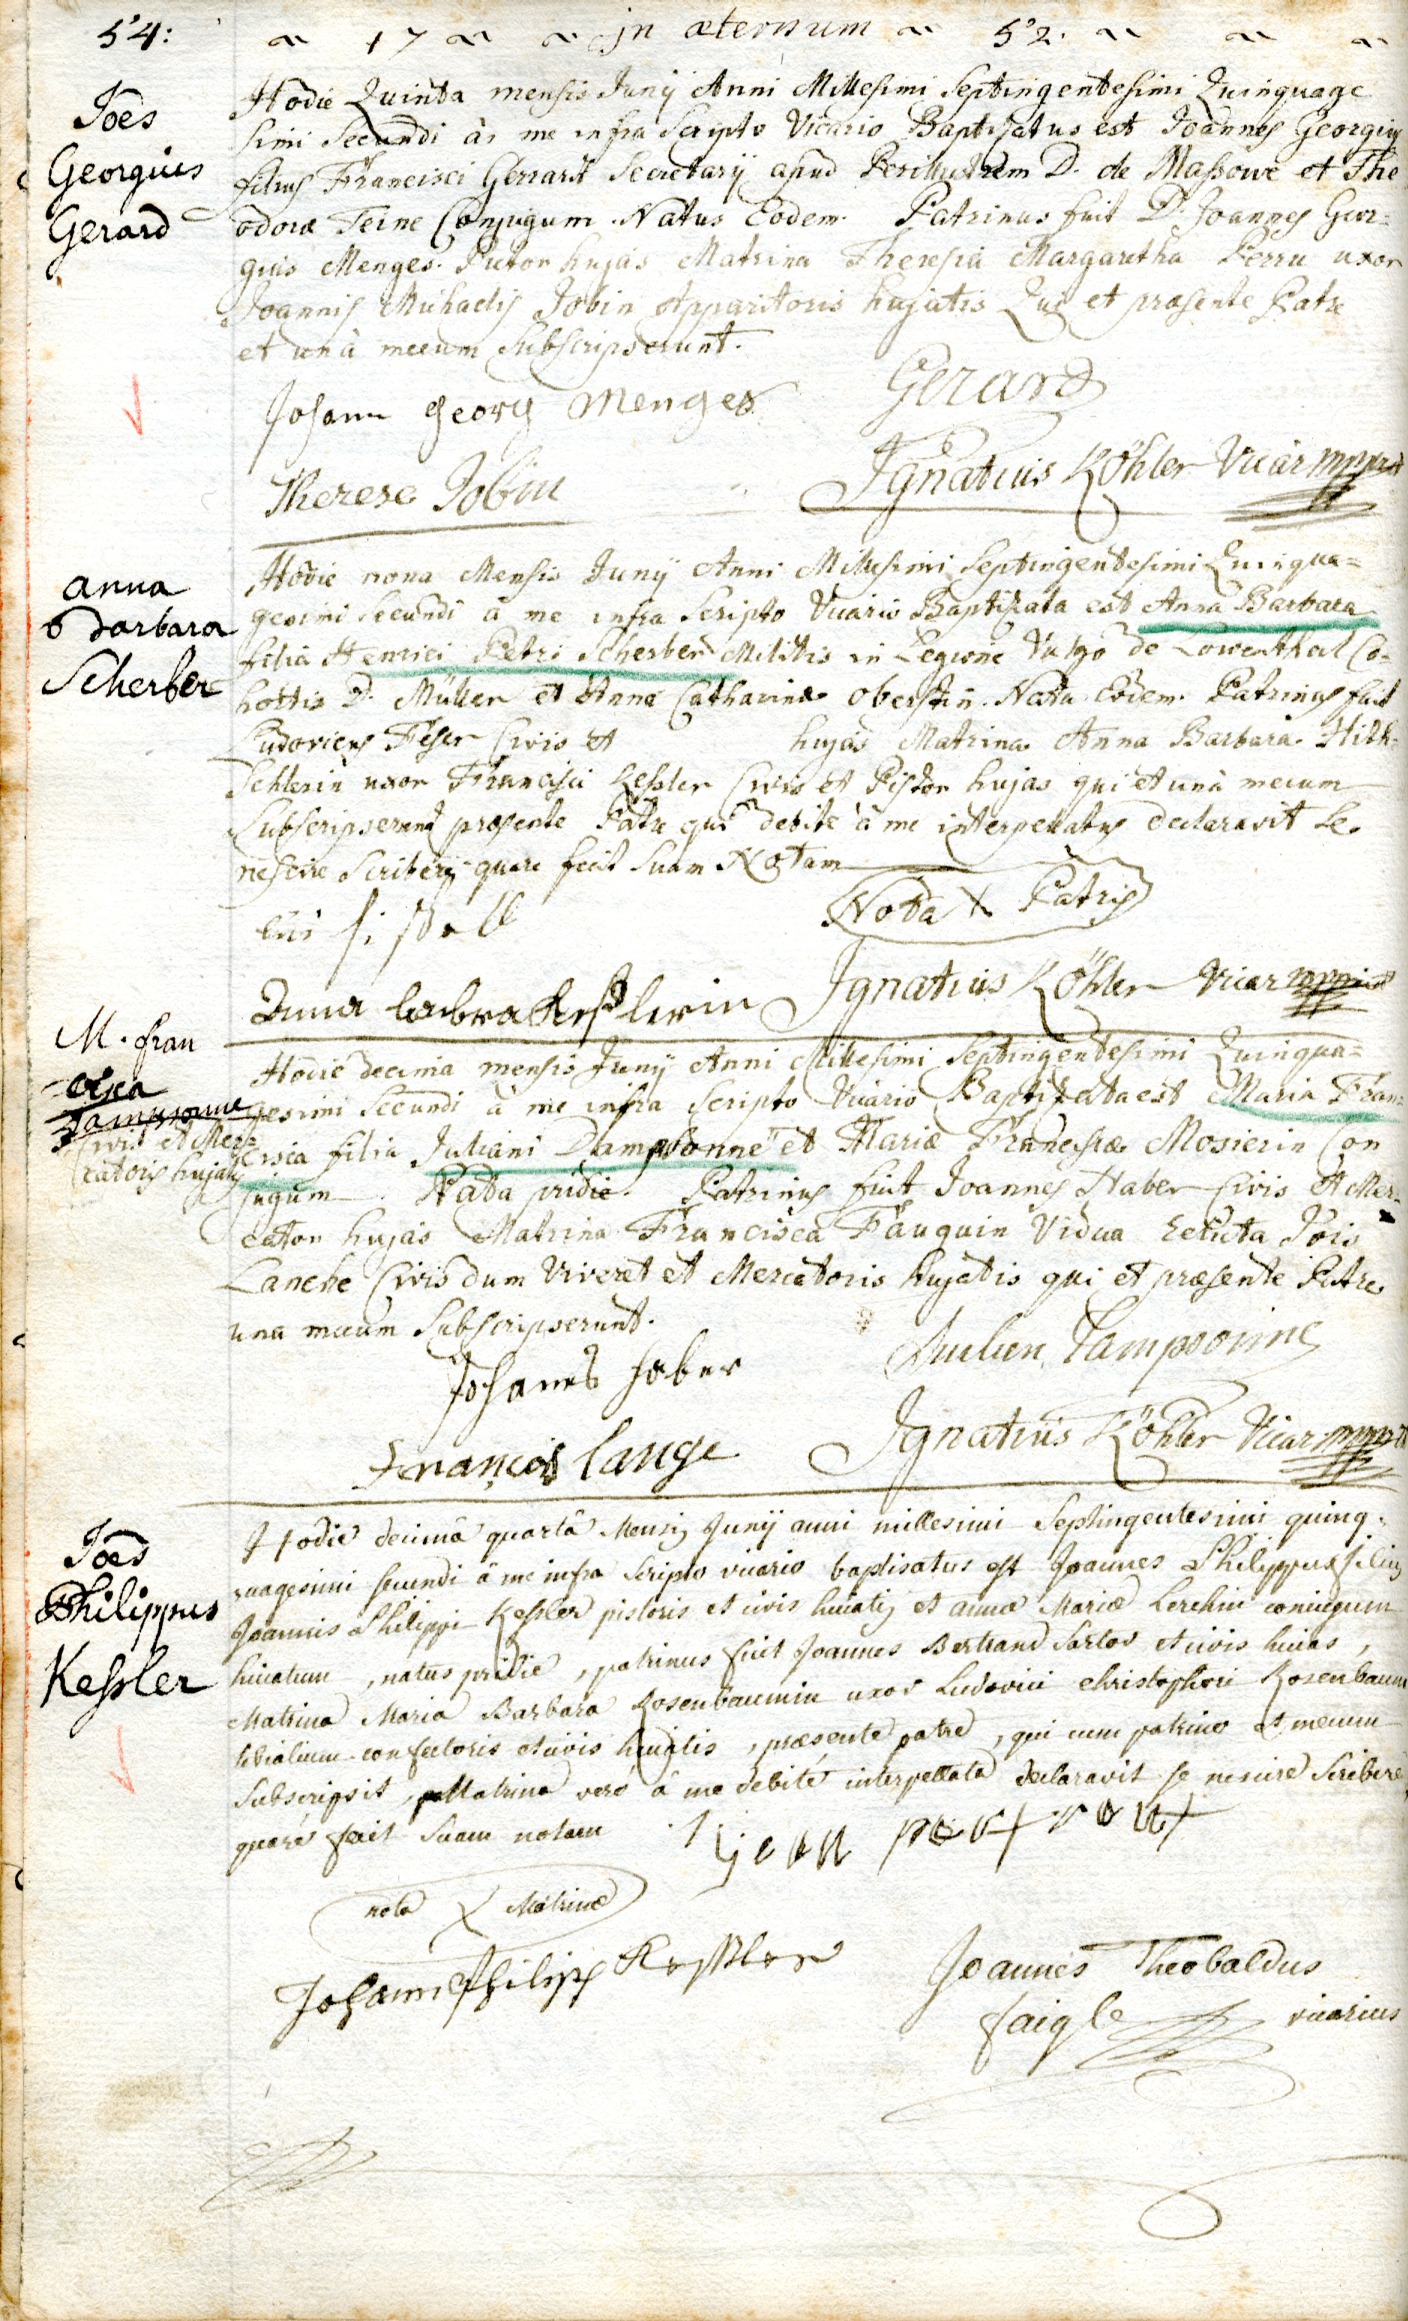 54: 17 in æternum 52.
Joes
Georgius
Gerard
Hodie Quinta mensis Junÿ Anni Millesimi Septingentesimi Quinquage
simi Secundi à me infra Scripto Vicario Baptizatus est Joannes Georgius
filius Francisci Gerrard Secretarÿ apud Perillustrem D. de Massowe et The
odoræ Teine Conjugum. Natus Eodem. Patrinus fuit D. Joannes Geor=
gius Menges. Sutor hujas Matrina Theresia Margaretha Perru uxor
Joannis Michaelis Jobin Apparitoris hujatis Qui et præsente Patre
et unà mecum Subscripserunt.
Johann georg Menges Gerard
Therese Jobin Ignatius Köhler Vicar mppria
anna
barbara
Scherber
Hodie nona Mensis Junÿ Anni Millesimi Septingentesimi Quinqua=
gesimi Secundi à me infra Scripto Vicario Baptizata est Anna Barbara
filia Henrici Petri Scherber Militis in Legione Vulgo de Lowenthal Co=
hortis D. Müller et Annæ Catharinæ Oberstin. Nata Eodem. Patrinus fuit
Ludovicus Feser Civis et hujas Matrina Anna Barbara Hith=
Schlerin uxor Francisci Kessler Civis et Pistor hujas qui et unà mecum
Subscripserunt præsente Patre qui debite à me interpellatus declaravit se
nescire Scribere quare fecit Suam Notam
Nota X Patris
Anna barbra Kesslerin Ignatius Köhler Vicar mppria
M. fran
cisca
Tampsonne
Civis et Mer=
catoris hujatis
Hodie decima mensis Junÿ Anni Millesimi Septingentesimi Quinqua=
gesimi Secundi à me infra Scripto Vicario Baptizata est Maria Fran=
cisca filia Juliani Tampsonne et Mariæ Franciscæ Mosierin Con
jugum. Nata pridie. Patrinus fuit Joannes Haber Civis et Mer=
cator hujas Matrina Francisca Fauquin Vidua Relicta Jois
Lanche Civis dum Viveret et Mercatoris hujatis qui et præsente Patre
una mecum Subscripserunt.
Johannes haber Julien Tampsonne
François lange Ignatius Köhler Vicar mppria
Joes
Philippus
Kessler
Hodie decimâ quartâ Mensis Junÿ anni millesimi Septingentesimi quinq=
uagesimi secundi à me infra Scripto vicario baptisatus est Joannes Philippus filius
Joannis Philippi Kessler pistoris et civis huiatis et annæ Mariæ Lerchin coniugum
huiatium, natus pridie, patrinus fuit Joannes Bertrand Sartor et civis huias,
Matrina Maria Barbara Rosenbaumin uxor Ludovici christophori Rosenbaum
tibialium confectoris et civis huiatis, præsente patre, qui cum patrino et mecum
Subscripsit, Matrina verò à me debitè interpellata declaravit se nescire Scribere
quarè fecit Suam notam
nota X Matrinæ
Johann Philipp Kessler Joannes Theobaldus
faigle vicarius